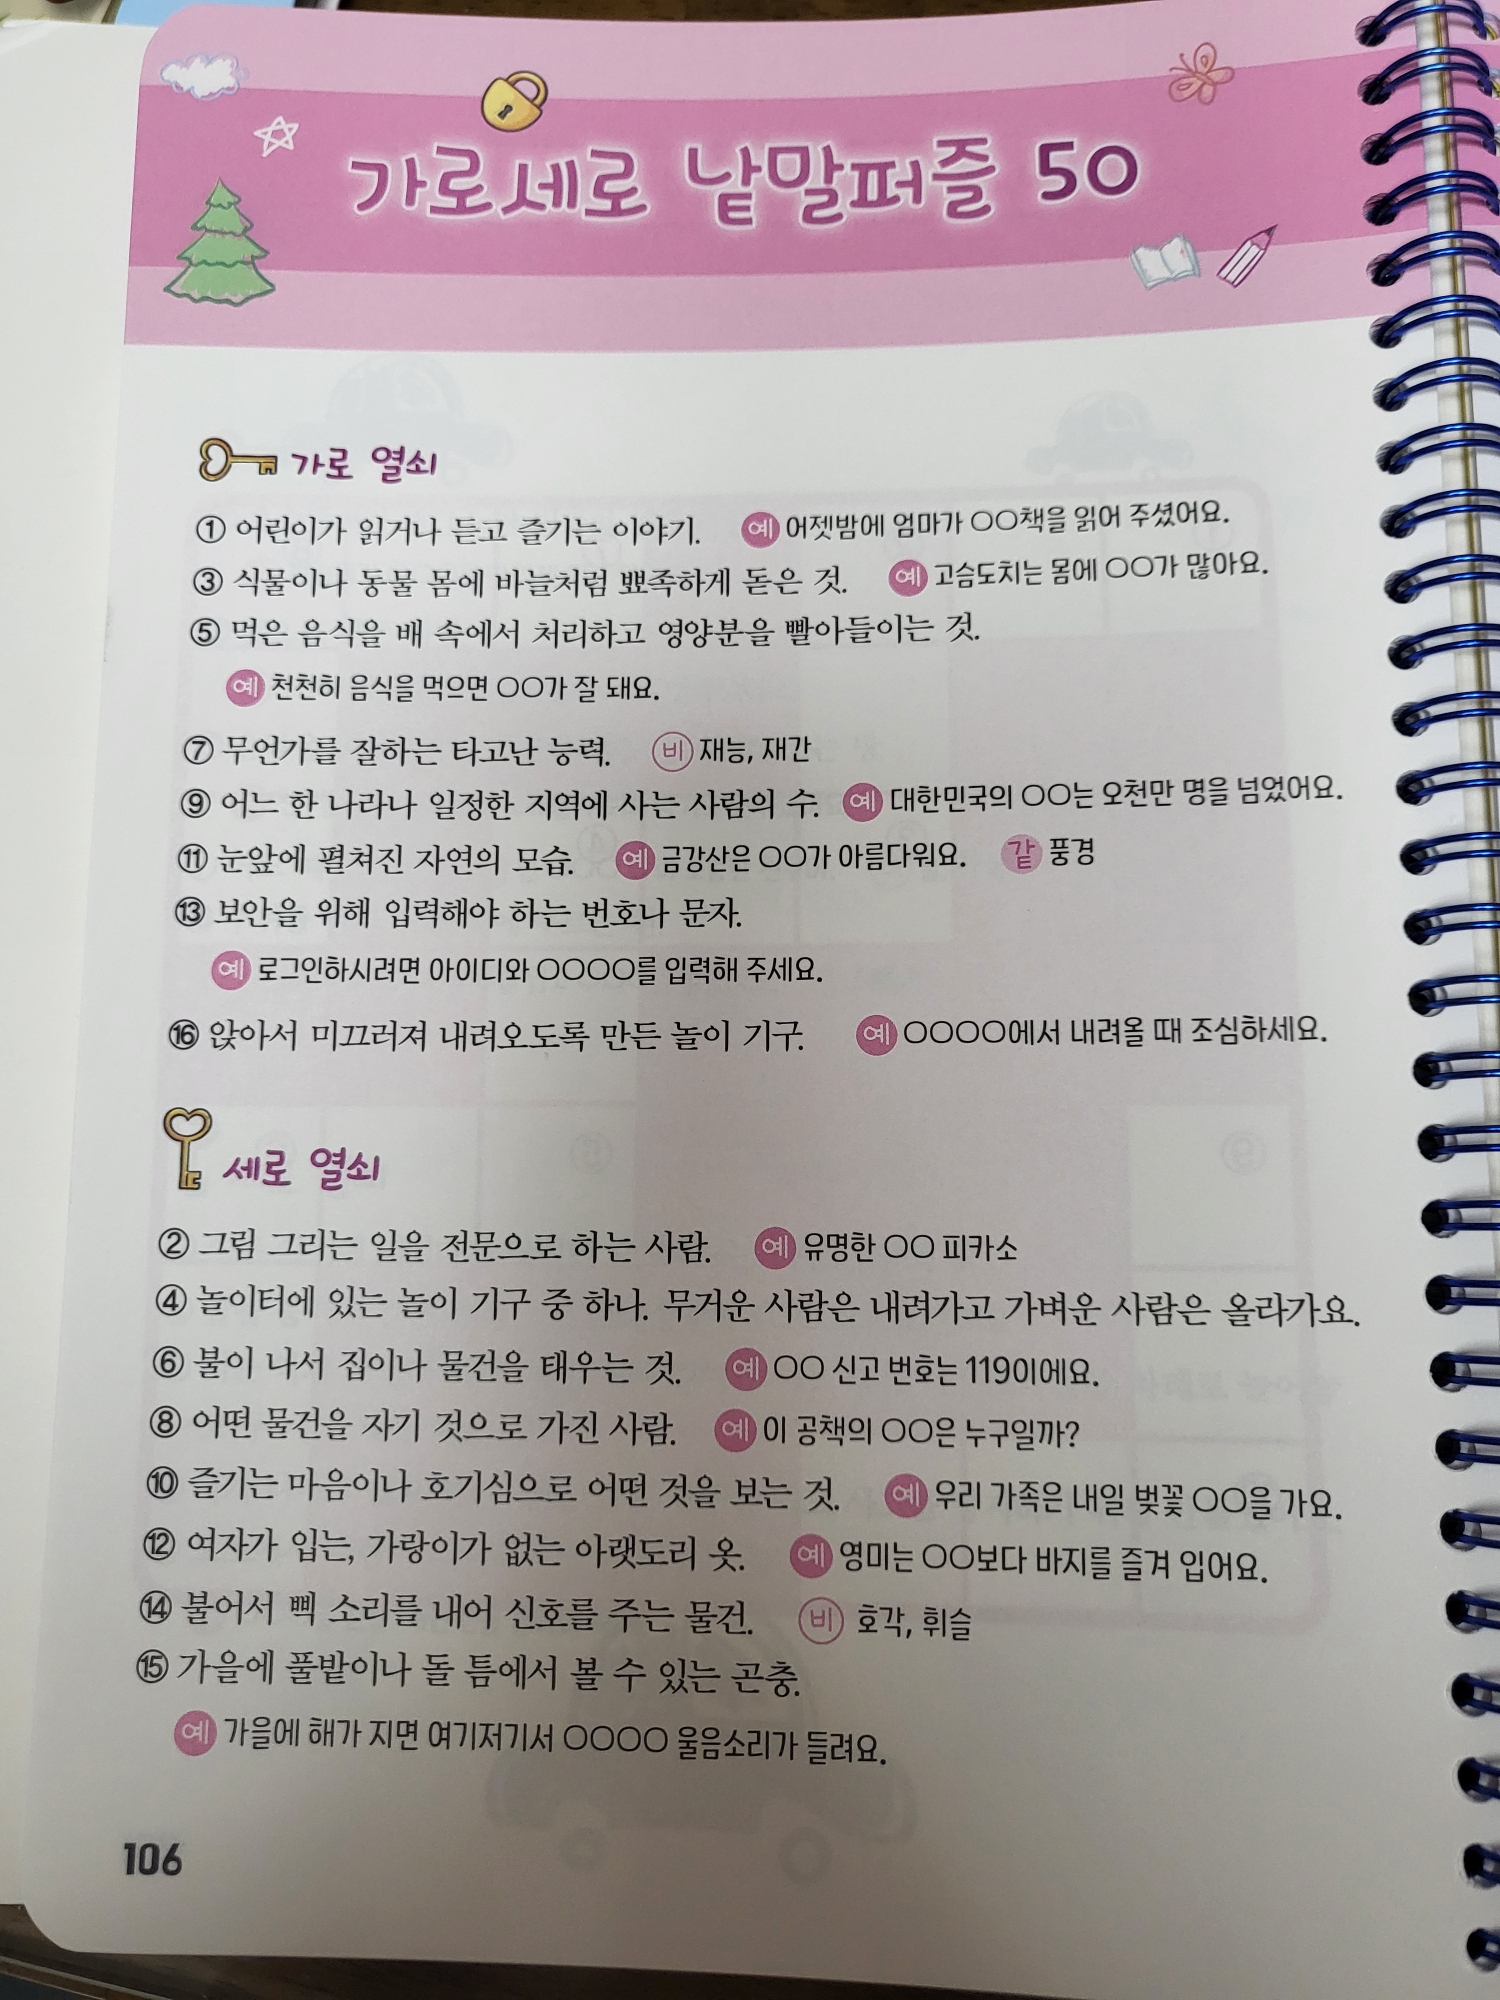 가로세로 낱말퍼즐 50
가로 열쇠
① 어린이가 읽거나 듣고 즐기는 이야기. 예 어젯밤에 엄마가 ○○책을 읽어 주셨어요.
③ 식물이나 동물 몸에 바늘처럼 뾰족하게 돋은 것. 예 고슴도치는 몸에 ○○가 많아요.
⑤ 먹은 음식을 배 속에서 처리하고 영양분을 빨아들이는 것.
예 천천히 음식을 먹으면 ○○가 잘 돼요.
⑦ 무언가를 잘하는 타고난 능력. 비 재능, 재간
⑨ 어느 한 나라나 일정한 지역에 사는 사람의 수. 예 대한민국의 ○○는 오천만 명을 넘었어요.
⑪ 눈앞에 펼쳐진 자연의 모습. 예 금강산은 ○○가 아름다워요. 같 풍경
⑬ 보안을 위해 입력해야 하는 번호나 문자.
예 로그인하시려면 아이디와 ○○○○를 입력해 주세요.
⑯ 앉아서 미끄러져 내려오도록 만든 놀이 기구. 예 ○○○○에서 내려올 때 조심하세요.
세로 열쇠
② 그림 그리는 일을 전문으로 하는 사람. 예 유명한 ○○ 피카소
④ 놀이터에 있는 놀이 기구 중 하나. 무거운 사람은 내려가고 가벼운 사람은 올라가요.
⑥ 불이 나서 집이나 물건을 태우는 것. 예 ○○ 신고 번호는 119이에요.
⑧ 어떤 물건을 자기 것으로 가진 사람. 예 이 공책의 ○○은 누구일까?
⑩ 즐기는 마음이나 호기심으로 어떤 것을 보는 것. 예 우리 가족은 내일 벚꽃 ○○을 가요.
⑫ 여자가 입는, 가랑이가 없는 아랫도리 옷. 예 영미는 ○○보다 바지를 즐겨 입어요.
⑭ 불어서 삑 소리를 내어 신호를 주는 물건. 비 호각, 휘슬
⑮ 가을에 풀밭이나 돌 틈에서 볼 수 있는 곤충.
예 가을에 해가 지면 여기저기서 ○○○○ 울음소리가 들려요.
106